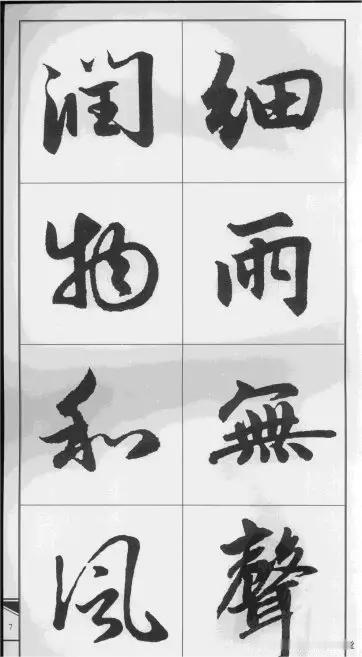 細雨無聲
潤物和風
7